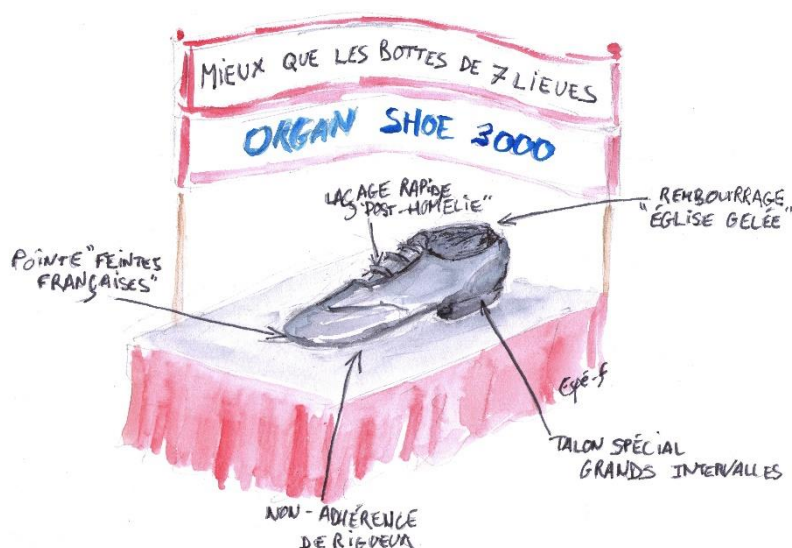 MIEUX QUE LES BOTTES DE 7 LIEUES
ORGAN SHOE 3000
LAÇAGE RAPIDE
"POST-HOMÉLIE"
REMBOURRAGE
"ÉGLISE GELÉE"
POINTE "FEINTES
FRANÇAISES"
TALON SPÉCIAL
GRANDS INTERVALLES
NON-ADHÉRENCE
DE RIGUEUR